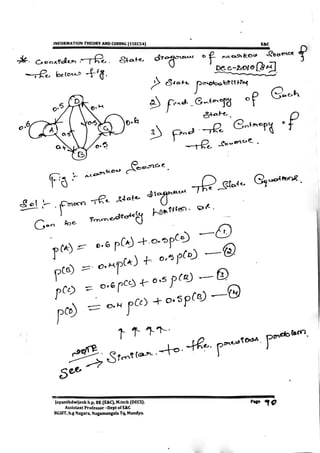 INFORMATION THEORY AND CODING (15EC54) E&C
* Consider The State diagram of Markov Source of
The below fig. DEC-2010 [8M]
1) State probabilities
2) find Entropy of Each
State.
3) find The Entropy of
The Source.
0.5 D 0.4
0.6 A 0.5 C 0.6
0.4 B 0.5
fig :- Markov Source.
Sol :- from The State diagram The State Equations
Can be Immediately written as.
p(A) = 0.6 p(A) + 0.5 p(D) — ①
p(B) = 0.4 p(A) + 0.5 p(D) — ②
p(C) = 0.6 p(C) + 0.5 p(B) — ③
p(D) = 0.4 p(C) + 0.5 p(B) — ④
NOTE
See → Similar to the previous problem.
Jayanthdwijesh h p, BE (E&C), M.tech (DECS).
Assistant Professor –Dept of E&C
BGSIT, b.g Nagara, Nagamangala Tq, Mandya.
Page 90